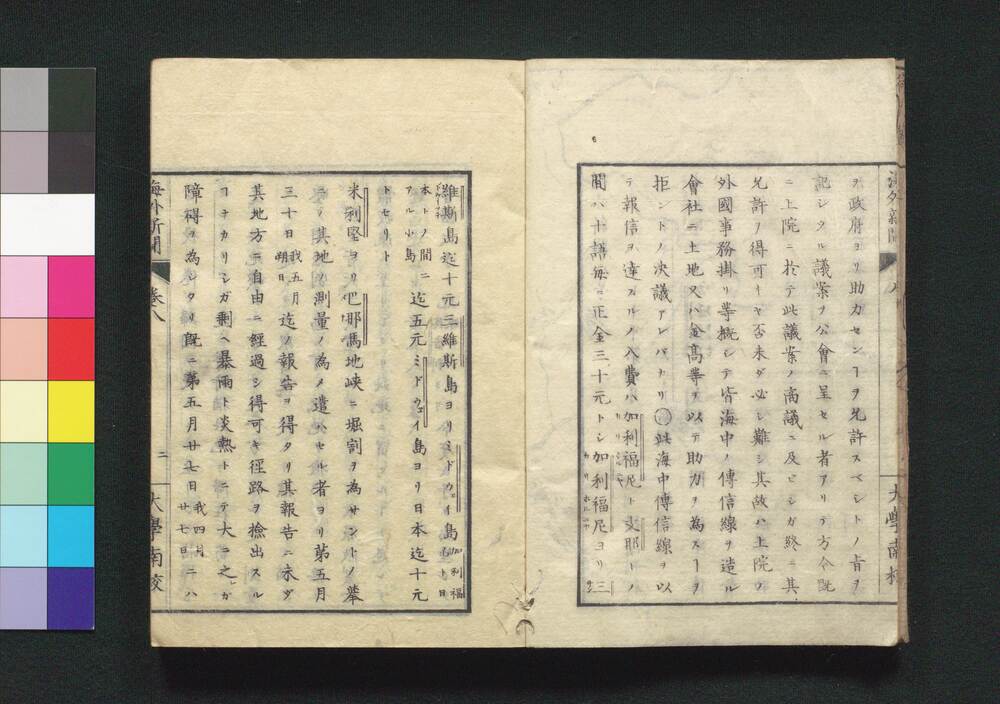 海外新聞
大學南校
ヲ政府ヨリ助力センヿヲ允許スベシトノ旨ヲ
記シタル議案ヲ公會ニ呈セル者アリテ方今既
ニ上院ニ於テ此議案ノ商議ニ及ビシガ終ニ其
允許ヲ得可キヤ否未ダ必シ難シ其故ハ上院ノ
外國事務掛リ等概シテ皆海中ノ傳信線ヲ造ル
會社ニ土地又ハ金高等ヲ以テ助力ヲ為スヿヲ
拒ントノ决議アレバナリ○此海中傳信線ヲ以
テ報信ヲ達スルノ入費ハ加利福尼ト支那トノ
間ハ十語毎ニ正金三十元トシ加利福尼ヨリ三
維斯島迄十元三維斯島ヨリミドウェイ島加利福
尼ト日
本トノ間ニ
アル小島迄五元ミドウェイ島ヨリ日本迄十元
トセリト
米利堅ヨリ巴那馬地峡ニ堀割ヲ為サントノ擧
ニテ其地ノ測量ノ為メ遣ハセル者ヨリ第五月
三十日我五月
朔日迄ノ報告ヲ得タリ其報告ニ未ダ
其地方ニ自由ニ經過シ得可キ徑路ヲ撿出スル
ヿナカリシガ剰ヘ暴雨ト炎熱トニテ大ニ之ガ
障碍ヲ為シタリ既ニ第五月廿七日我四月
廿七日ニハ
海外新聞
卷八
二
大學南校